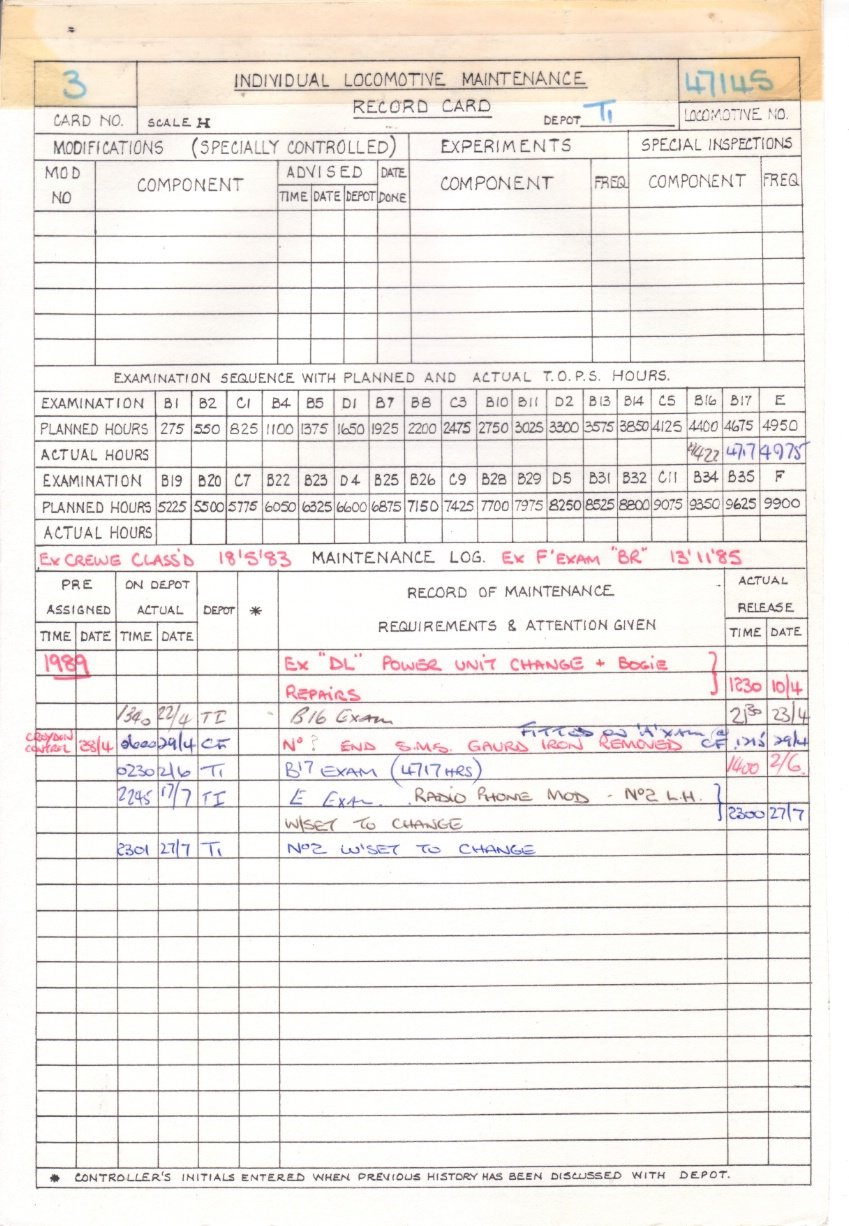 3 INDIVIDUAL LOCOMOTIVE MAINTENANCE 47145
RECORD CARD
CARD NO. SCALE H DEPOT TI LOCOMOTIVE NO.
MODIFICATIONS (SPECIALLY CONTROLLED) EXPERIMENTS SPECIAL INSPECTIONS
MOD NO COMPONENT ADVISED DATE DONE COMPONENT FREQ COMPONENT FREQ
TIME DATE DEPOT
EXAMINATION SEQUENCE WITH PLANNED AND ACTUAL T.O.P.S. HOURS.
EXAMINATION B1 B2 C1 B4 B5 D1 B7 B8 C3 B10 B11 D2 B13 B14 C5 B16 B17 E
PLANNED HOURS 275 550 825 1100 1375 1650 1925 2200 2475 2750 3025 3300 3575 3850 4125 4400 4675 4950
ACTUAL HOURS 4422 4717 4975
EXAMINATION B19 B20 C7 B22 B23 D4 B25 B26 C9 B28 B29 D5 B31 B32 C11 B34 B35 F
PLANNED HOURS 5225 5500 5775 6050 6325 6600 6875 7150 7425 7700 7975 8250 8525 8800 9075 9350 9625 9900
ACTUAL HOURS
EX CREWE CLASS'D 18'5'83 MAINTENANCE LOG. EX F'EXAM "BR" 13'11'85
PRE ASSIGNED ON DEPOT ACTUAL DEPOT * RECORD OF MAINTENANCE ACTUAL RELEASE
REQUIREMENTS & ATTENTION GIVEN
TIME DATE TIME DATE TIME DATE
1989 EX "DL" POWER UNIT CHANGE + BOGIE
REPAIRS 1230 10/4
1340 22/4 TI B16 EXAM 2130 23/4
FITTED ON 'A' EXAM @
CROYDON CONTROL 28/4 0600 29/4 CF Nº ? END S.M.S. GAURD IRON REMOVED CF 1215 29/4
0230 2/6 TI B17 EXAM (4717 HRS) 1400 2/6.
2245 17/7 TI E EXAM. RADIO PHONE MOD - Nº2 L.H.
W/SET TO CHANGE 2300 27/7
2301 27/7 TI Nº2 W'SET TO CHANGE
* CONTROLLER'S INITIALS ENTERED WHEN PREVIOUS HISTORY HAS BEEN DISCUSSED WITH DEPOT.